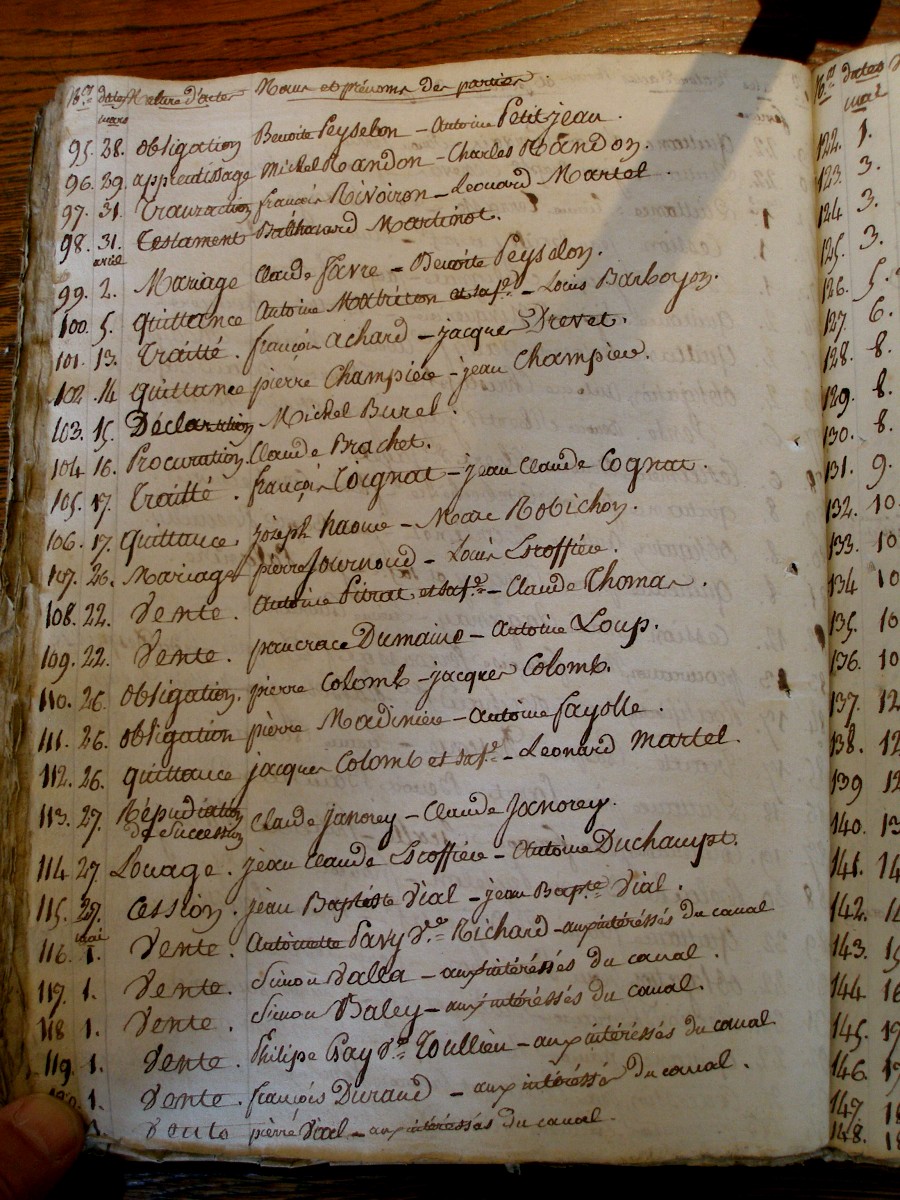 N.os dates Nature d'actes Noms et prénoms des parties
mars
95. 28. obligation Benoite Peyselon - Antoine Petitjean.
96. 29. apprentissage Michel Randon - Charles Randon.
97. 31. Transaction françois Rivoiron - Leonard Martel.
98. 31. Testament Balthazard Martinot.
avril
99. 2. Mariage Claude favre - Benoite Peyselon.
100. 5. quittance Antoine et sa fe. - Louis Barboyon.
101. 13. Traitté. françois achard - jacques Drevet.
102. 14 quittance pierre Champiere - jean Champiere.
103. 15. Déclaration Michel Burel.
104 16. Procuration. Claude Brachet.
105. 17. Traitté. françois Coignat - jean Claude Cognat.
106. 17. quittance joseph - Marc Robichon.
107. 26. Mariage pierre Journoud - Louise Escoffiere.
108. 22. Vente. Antoine Pitrat et sa fe. - Claude Thomas.
109. 22. Vente. pancrace Dumaine - Antoine Loup.
110. 26. obligation. pierre Colomb - jacques Colomb.
111. 26. obligation pierre Madiniere - Antoine fayolle.
112. 26. quittance jacques Colomb et sa fe. - Leonard Martel.
113. 27. Répudiation
de Succession Claude janorey - Claude Janorey.
114 27 Louage. jean Claude Escoffiere - Antoine Duchampt.
115. 27. Cession. jean Baptiste Vial - jean Bapte. Vial.
mai
116. 1. Vente. Antoinette Pavy Ve. Richard - aux intéressés du canal
117. 1. Vente. Simon Valla - aux intéressés du canal.
118 1. Vente. Simon Baley - aux intéressés du canal.
119. 1. Vente. Philipe Gay Ve. Toullieu - aux intéressés du canal
1. Vente. françois Durand - aux intéressés du canal.
Vente pierre Vial - aux intéressés du canal.
N.os dates
mai
122. 1.
123. 3.
124 3.
125. 3.
126. 5.
127. 6.
128. 8.
129. 8.
130. 8.
131. 9.
132. 10.
133. 10
134 10
135. 10
136. 10
137. 12
138. 12
139 12
140. 13
141. 14
142.
143. 15
144 16
145. 17
146. 17
147.
148.